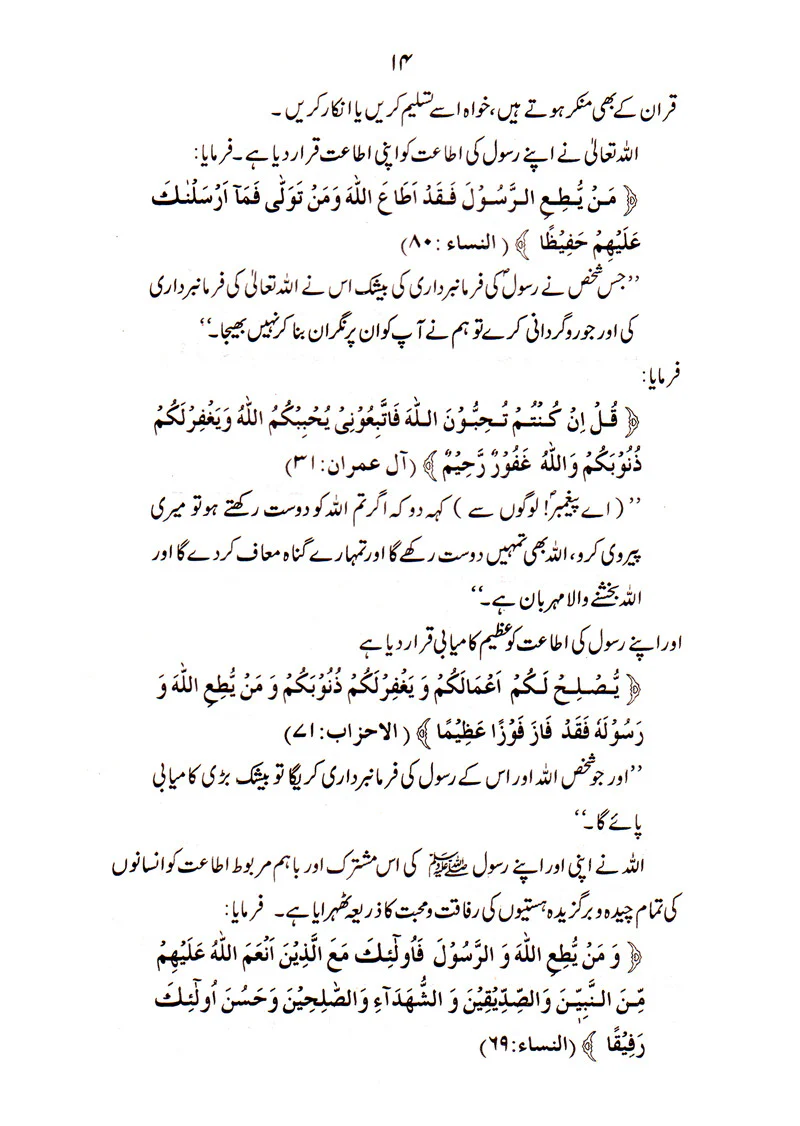 ۱۴
قرآن کے بھی منکر ہوتے ہیں، خواہ اسے تسلیم کریں یا انکار کریں ۔
اللہ تعالیٰ نے اپنے رسول کی اطاعت کو اپنی اطاعت قرار دیا ہے ۔ فرمایا:
﴿ مَنْ يُّطِعِ الرَّسُوْلَ فَقَدْ اَطَاعَ اللّٰهَ وَمَنْ تَوَلّٰى فَمَآ اَرْسَلْنٰكَ
عَلَيْهِمْ حَفِيْظًا ﴾ ( النساء :۸۰)
’’جس شخص نے رسولؐ کی فرمانبرداری کی بیشک اس نے اللہ تعالیٰ کی فرمانبرداری
کی اور جو روگردانی کرے تو ہم نے آپ کو ان پر نگران بنا کر نہیں بھیجا۔‘‘
فرمایا:
﴿ قُلْ اِنْ كُنْتُمْ تُحِبُّوْنَ اللّٰهَ فَاتَّبِعُوْنِيْ يُحْبِبْكُمُ اللّٰهُ وَيَغْفِرْلَكُمْ
ذُنُوْبَكُمْ وَاللّٰهُ غَفُوْرٌ رَّحِيْمٌ ﴾ (آل عمران: ۳۱)
’’( اے پیغمبرؐ! لوگوں سے ) کہہ دو کہ اگر تم اللہ کو دوست رکھتے ہو تو میری
پیروی کرو، اللہ بھی تمہیں دوست رکھے گا اور تمہارے گناہ معاف کر دے گا اور
اللہ بخشنے والا مہربان ہے۔‘‘
اور اپنے رسول کی اطاعت کو عظیم کامیابی قرار دیا ہے
﴿ يُّصْلِحْ لَكُمْ اَعْمَالَكُمْ وَ يَغْفِرْلَكُمْ ذُنُوْبَكُمْ وَ مَنْ يُّطِعِ اللّٰهَ وَ
رَسُوْلَهٗ فَقَدْ فَازَ فَوْزًا عَظِيْمًا ﴾ ( الاحزاب: ۷۱)
’’اور جو شخص اللہ اور اس کے رسول کی فرمانبرداری کریگا تو بیشک بڑی کامیابی
پائے گا۔‘‘
اللہ نے اپنی اور اپنے رسول ﷺ کی اس مشترک اور باہم مربوط اطاعت کو انسانوں
کی تمام چیدہ و برگزیدہ ہستیوں کی رفاقت و محبت کا ذریعہ ٹھہرایا ہے ۔ فرمایا:
﴿ وَ مَنْ يُّطِعِ اللّٰهَ وَ الرَّسُوْلَ فَاُولٰٓئِكَ مَعَ الَّذِيْنَ اَنْعَمَ اللّٰهُ عَلَيْهِمْ
مِّنَ النَّبِيّٖنَ وَالصِّدِّيْقِيْنَ وَ الشُّهَدَآءِ وَالصّٰلِحِيْنَ وَحَسُنَ اُولٰٓئِكَ
رَفِيْقًا ﴾ (النساء:۶۹)